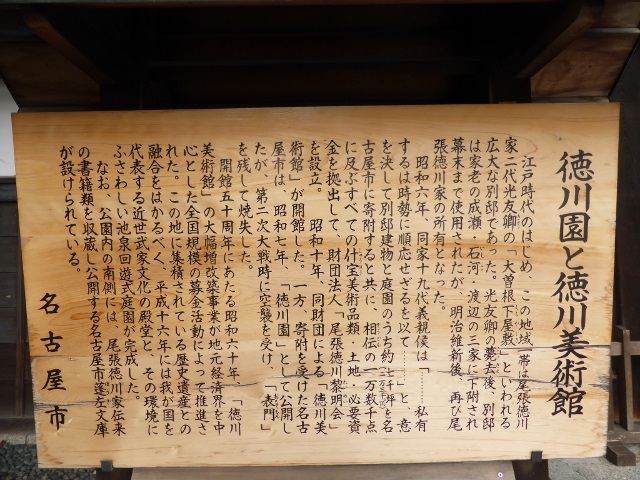 徳川園と徳川美術館
江戸時代のはじめ、この地域一帯は尾張徳川
家二代光友卿の「大曽根下屋敷」といわれる
広大な別邸であった。光友卿の薨去後、別邸
は家老の成瀬・石河・渡辺の三家に下附され
幕末まで使用されたが、明治維新後、再び尾
張徳川家の所有となった。
昭和六年、同家十九代義親侯は「………私有
するは時勢に順応せざるを以て………」と、意
を決して別邸建物と庭園のうち約七千坪を名
古屋市に寄附すると共に、相伝の一万数千点
に及ぶすべての什宝美術品類・土地・必要資
金を拠出して、財団法人「尾張徳川黎明会」
を設立。昭和十年、同財団による「徳川美
術館」が開館した。一方、寄附を受けた名古
屋市は、昭和七年、「徳川園」として公開し
たが、第二次大戦時に空襲を受け、「表門」
を残して焼失した。
開館五十周年にあたる昭和六十年、「徳川
美術館」の大幅増改築事業が地元経済界を中
心とした全国規模の募金活動によって推進さ
れた。この地に集積されている歴史遺産との
融合をはかるべく、平成十六年には我が国を
代表する近世武家文化の殿堂と、その環境に
ふさわしい池泉回遊式庭園が完成した。
なお、公園内の南側には、尾張徳川家伝来
の書籍類を収蔵し公開する名古屋市蓬左文庫
が設けられている。
名古屋市